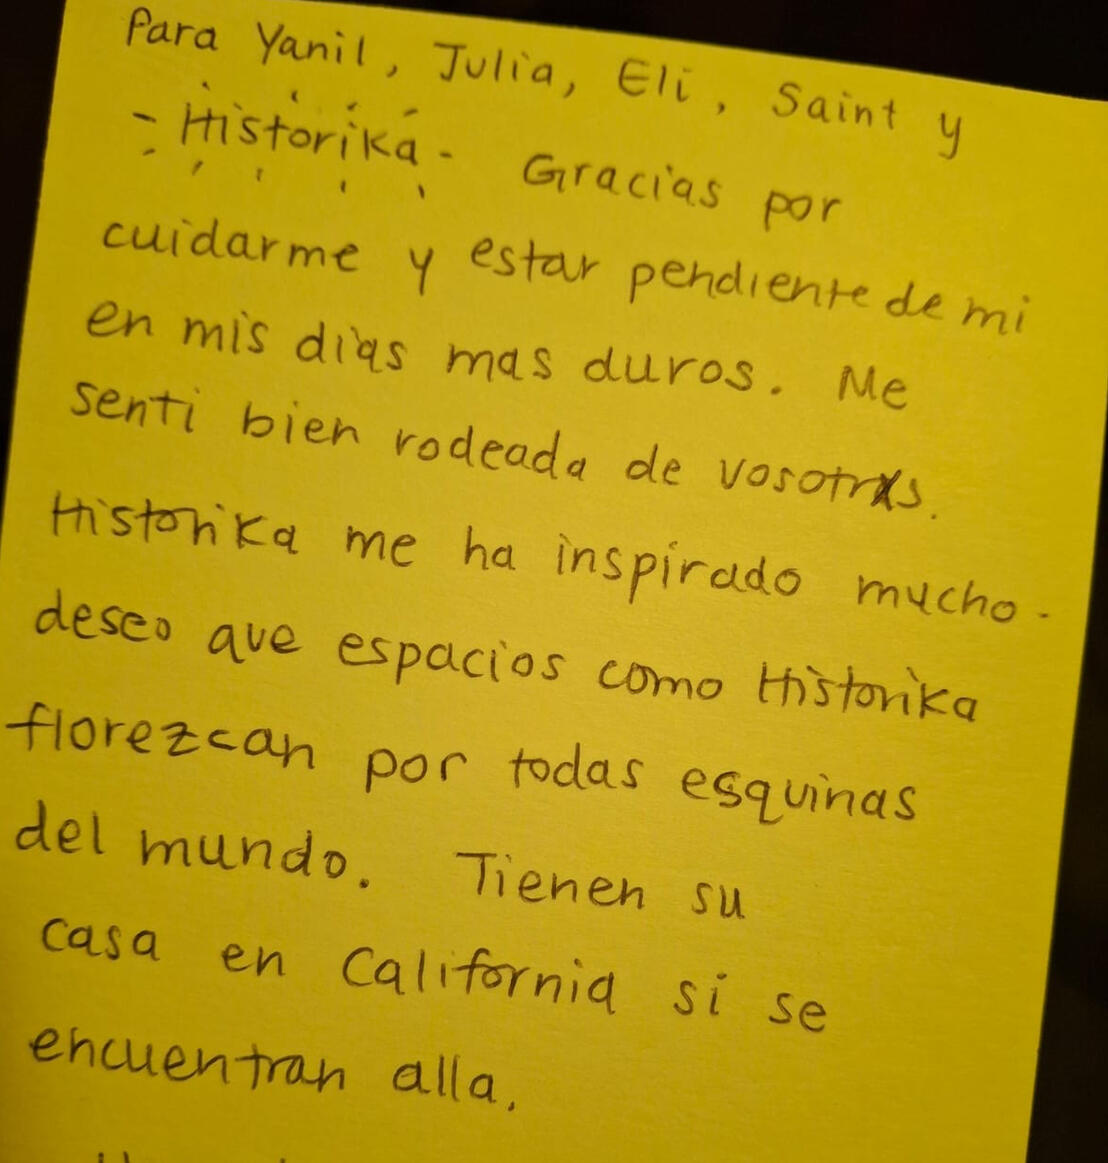 Para Yanil, Julia, Eli, Saint y
- Historika - Gracias por
cuidarme y estar pendiente de mi
en mis dias mas duros. Me
senti bien rodeada de vosotrxs.
Historika me ha inspirado mucho.
deseo que espacios como Historika
florezcan por todas esquinas
del mundo. Tienen su
casa en California si se
encuentran alla.